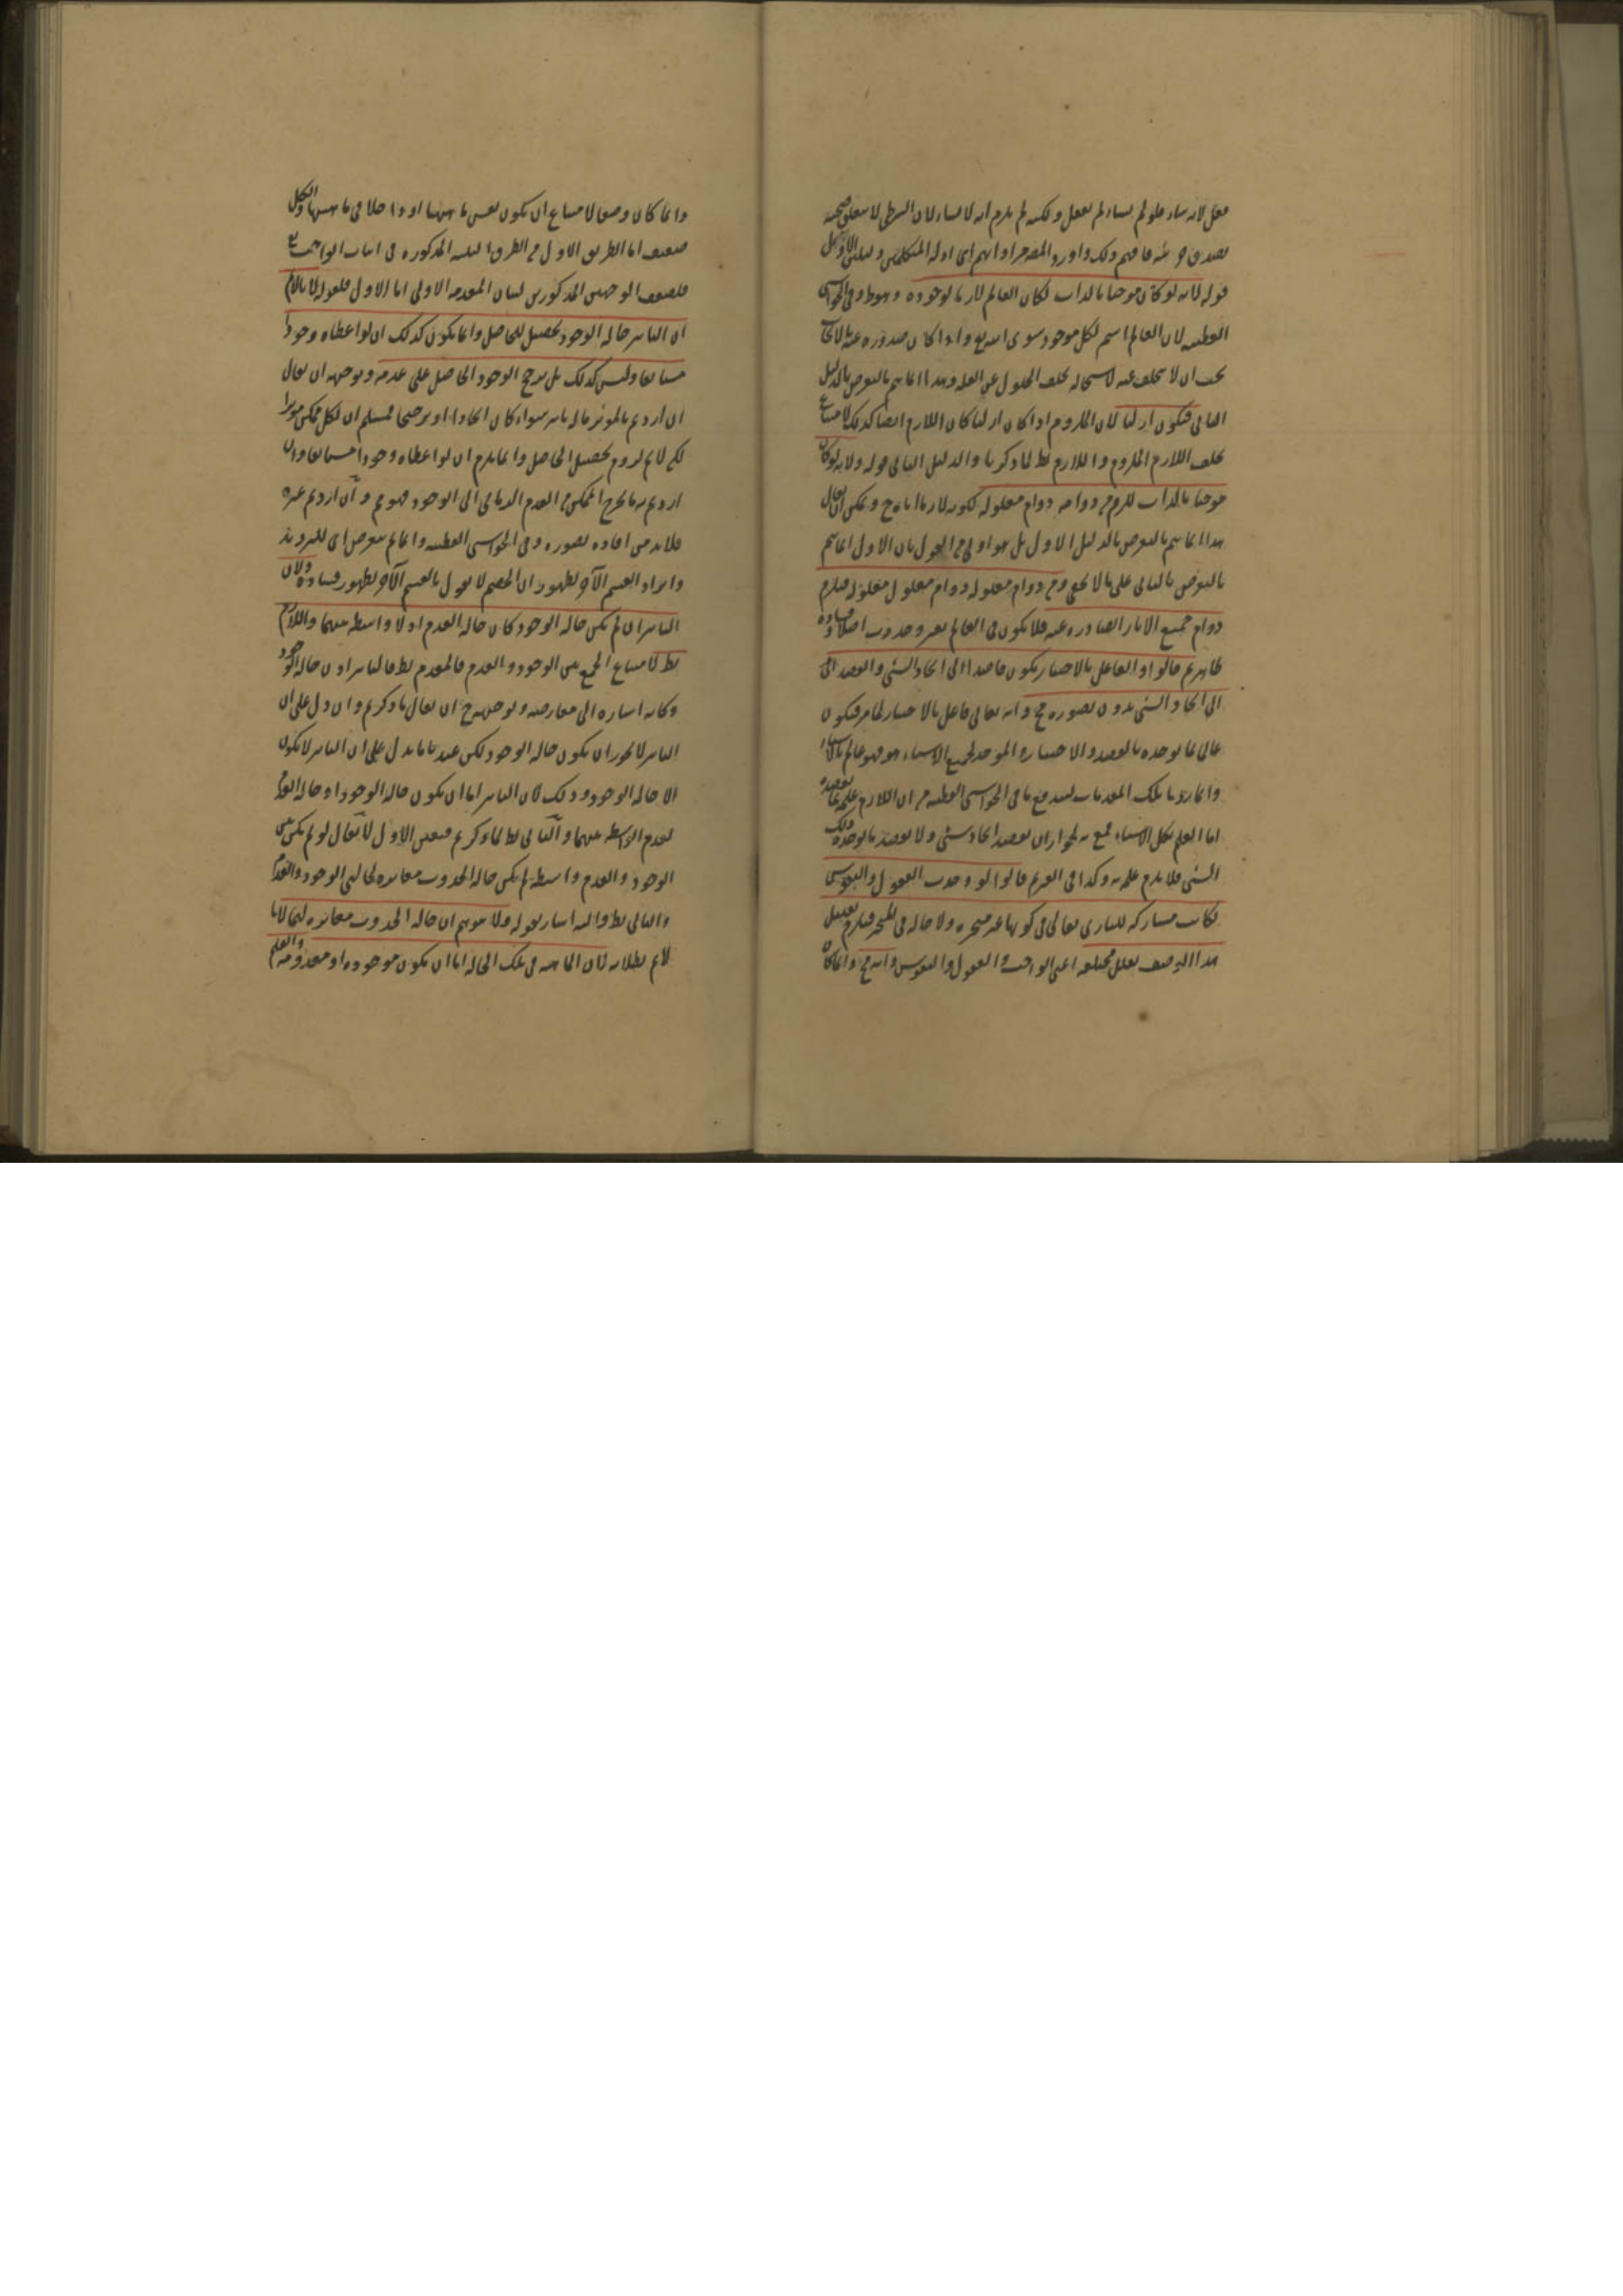 فعل لانه شاء فلو لم يشاء لم يفعل ولكنه لم يلزم انه لا يشاء لان الشرطى لا يتعلق صحته
بصدق جزئيه فافهم ذلك واورد المصـ مرادا لهم اى ادلة المتكلمين دليلين الاول
قوله لانه لو كان موجبا بالذات لكان العالم لازما لوجوده وهو ط وفى الحواشى
القطبيه لان العالم اسم لكل موجود سوى الله تع واذا كان صدوره عنه بالايجاب
يجب ان لا يتخلف عنه لاستحاله تخلف المعلول عن العله وهذا انما يتم بالتعرض بالدليل
الثانى فيكون ازليا لان الملزوم اذا كان ازليا كان اللازم ايضا كذلك لامتناع
تخلف اللازم الملزوم واللازم بط لما ذكرنا والدليل الثانى قوله ولانه لو كان
موجبا بالذات للزم من دوامه دوام معلوله لكونه لازما اياه ح ويمكن ان يقال
هذا انما يتم بالتعرض بالدليل الاول بل هو اولى من القول بان الاول انما يتم
بالتعرض بالثانى على ما لا يخفى ومن دوام معلوله دوام معلول معلوله فيلزم
دوام جميع الاثار الصادره عنه فلا يكون فى العالم تغير وحدوث اصلا وفساده
ظاهر ثم قالوا والفاعل بالاختيار يكون قاصدا الى ايجاد الشئ والقصد الى
الى ايجاد الشئ بدون تصوره مح وانه تعالى فاعل بالاختيار لما مر فيكون
عالى بما يوجده بالقصد والاختيار والموجد لجميع الاشياء هو فهو عالم بالاشياء
وانما زدنا تلك المقدمات ليندفع ما فى الحواشى القطبيه من ان اللازم علمه بما يقصده
اما العلم بكل الاشياء فممنوع لجواز ان يقصد ايجاد شئ ولا يقصد ما يوجده ذلك
الشئ فلا يلزم علمه به وكذا فى العدم قالوا لو وجدت العقول والنفوس
لكانت مشاركه للبارى تعالى فى كونها غير متحيزه ولا حاله فى المتحيز فيلزم تعليل
هذا الوصف بعلل مختلفه اعنى الواجب والعقول والنفوس وانه مح وانما كان
وانما كان وصفا لامتناع ان يكون نفس ماهيتها او داخلا فى ماهيتها والكل
ضعيف اما الطريق الاول من الطرق الثلثه المذكوره فى اثبات الواجب تع
فلضعف الوجهين المذكورين لبيان المقدمه الاولى اما الاول فلقوله لانا لانم
ان التاثير حاله الوجود تحصيل للحاصل وانما يكون كذلك ان لو اعطاه وجودا
مستانفا وليس كذلك بل يرجح الوجود الحاصل على عدمه وتوجيهه ان يقال
ان اردتم بالموثر ماله تاثير سواء كان ايجادا او ترجيحا فمسلم ان لكل ممكن موثرا
لكن لانم لزوم تحصيل الحاصل وانما يلزم ان لو اعطاه وجودا مستانفا وان
اردتم به ما يخرج الممكن من العدم الزمانى الى الوجود فهو مم وان اردتم غيره
فلابد من افاده تصوره وفى الحواشى القطبيه وانما لم يتعرض اى للترديد
وايراد القسم الآخر لظهور ان الخصم لا يقول بالقسم الآخر لظهور فساده ولان
التاثير ان لم يكن حاله الوجود كان حاله العدم اذ لا واسطه بينهما واللازم
بط لامتناع الجمع بين الوجود والعدم فالمقدم بط فالتاثير اذن حاله الوجود
وكانه اشاره الى معارضه وتوجيهه ح ان يقال ما ذكرتم وان دل على ان
التاثير لا يجوز ان يكون حاله الوجود لكن عندنا ما يدل على ان التاثير لا يكون
الا حاله الوجود وذلك لان التاثير اما ان يكون حاله الوجود او حاله العدم
لعدم الواسطه بينهما والثانى بط لما ذكرتم فتعين الاول لا يقال لو لم يكن بين
الوجود والعدم واسطه لم يكن حاله الحدوث مغايره لحالتى الوجود والعدم
والتالى بط واليه اشار بقوله ولا يتوهم ان حاله الحدوث مغايره لهما لانا
لانم بطلانه لان الماهيه فى تلك الحاله اما ان يكون موجوده او معدومه والعلم